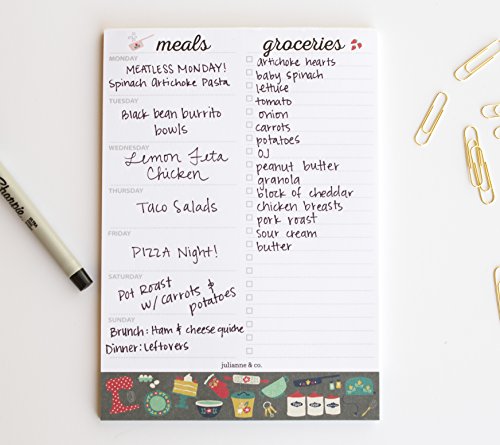 meals
MONDAY
MEATLESS MONDAY!
Spinach Artichoke Pasta
TUESDAY
Black bean burrito
bowls
WEDNESDAY
Lemon Feta
Chicken
THURSDAY
Taco Salads
FRIDAY
PIZZA Night!
SATURDAY
Pot Roast
w/ carrots &
potatoes
SUNDAY
Brunch: Ham & cheese quiche
Dinner: Leftovers
groceries
artichoke hearts
baby spinach
lettuce
tomato
onion
carrots
potatoes
OJ
peanut butter
granola
block of cheddar
chicken breasts
pork roast
sour cream
butter
julianne & co.
Sharpie